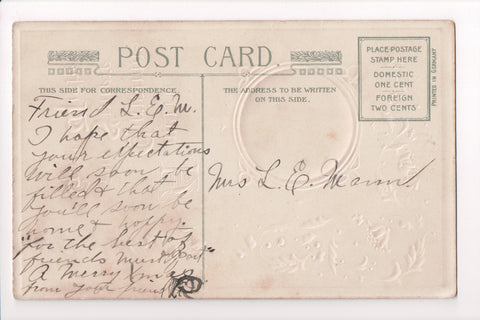 POST CARD.
THIS SIDE FOR CORRESPONDENCE.
THE ADDRESS TO BE WRITTEN
ON THIS SIDE.
PLACE POSTAGE
STAMP HERE
DOMESTIC
ONE CENT
FOREIGN
TWO CENTS
PRINTED IN GERMANY
Friend L. E. M.
I hope that
your expectations
will soon be
filled & that
you'll soon be
home & happy.
"for the best of
friends must part"
A Merry Xmas
from your friend
Mrs L. E. Mann.